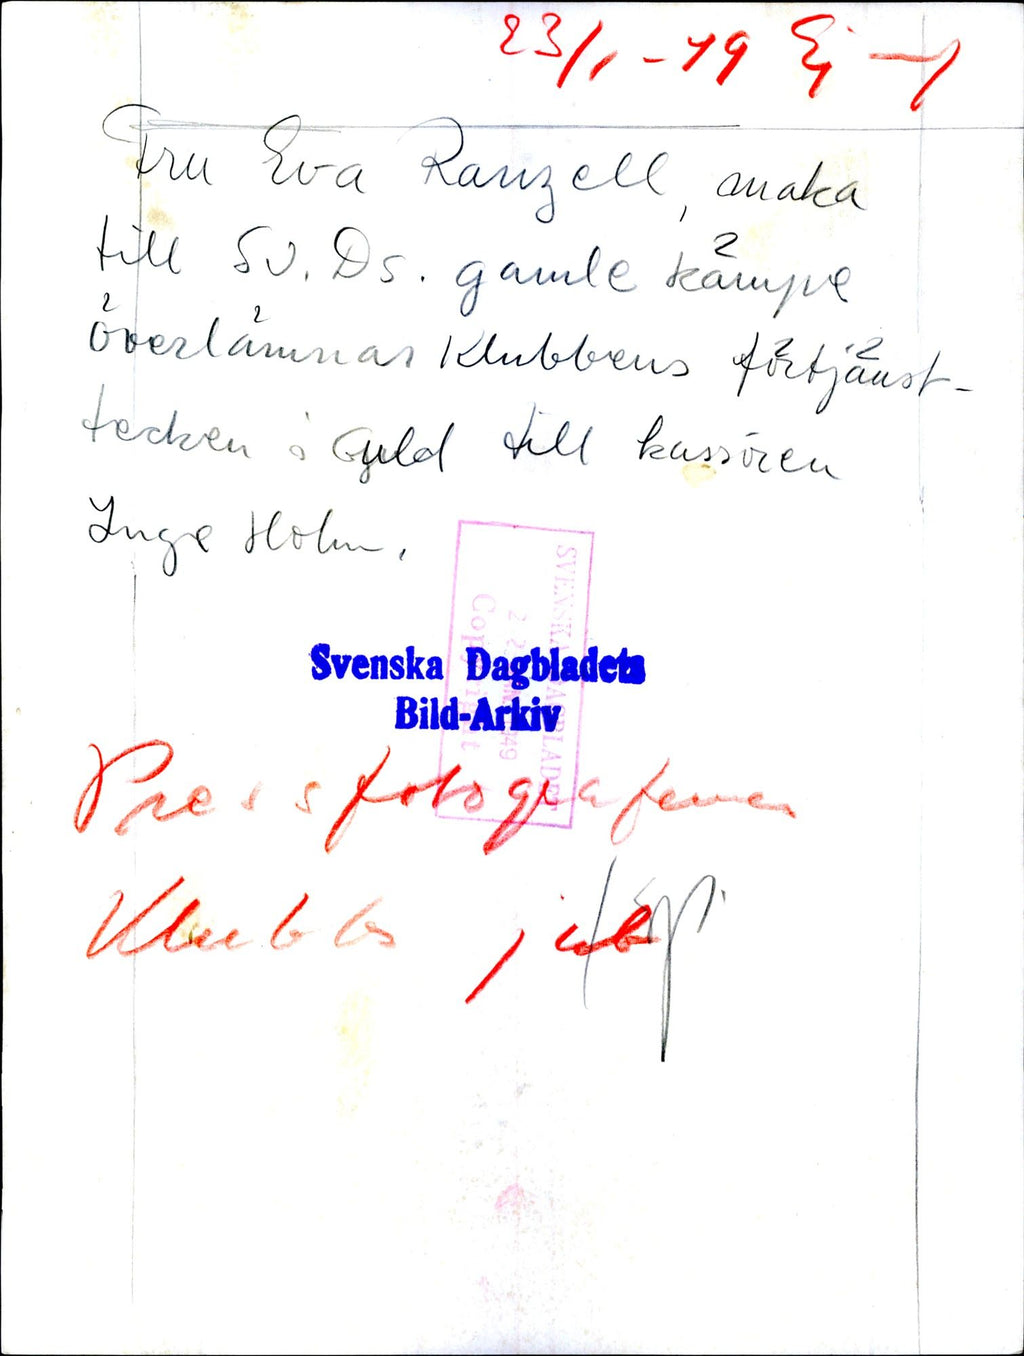 23/1 - 49 Ej
Fru Eva Ranzell, maka
till Sv. Ds. gamle kämpe
överlämnar Klubbens förtjänst-
tecken i Guld till kassören
Inge Holm.
SVENSKA DAGBLADET
2 2 JAN. 1949
Copyright
Svenska Dagbladets
Bild-Arkiv
Pressfotografernas
Klubbs jub